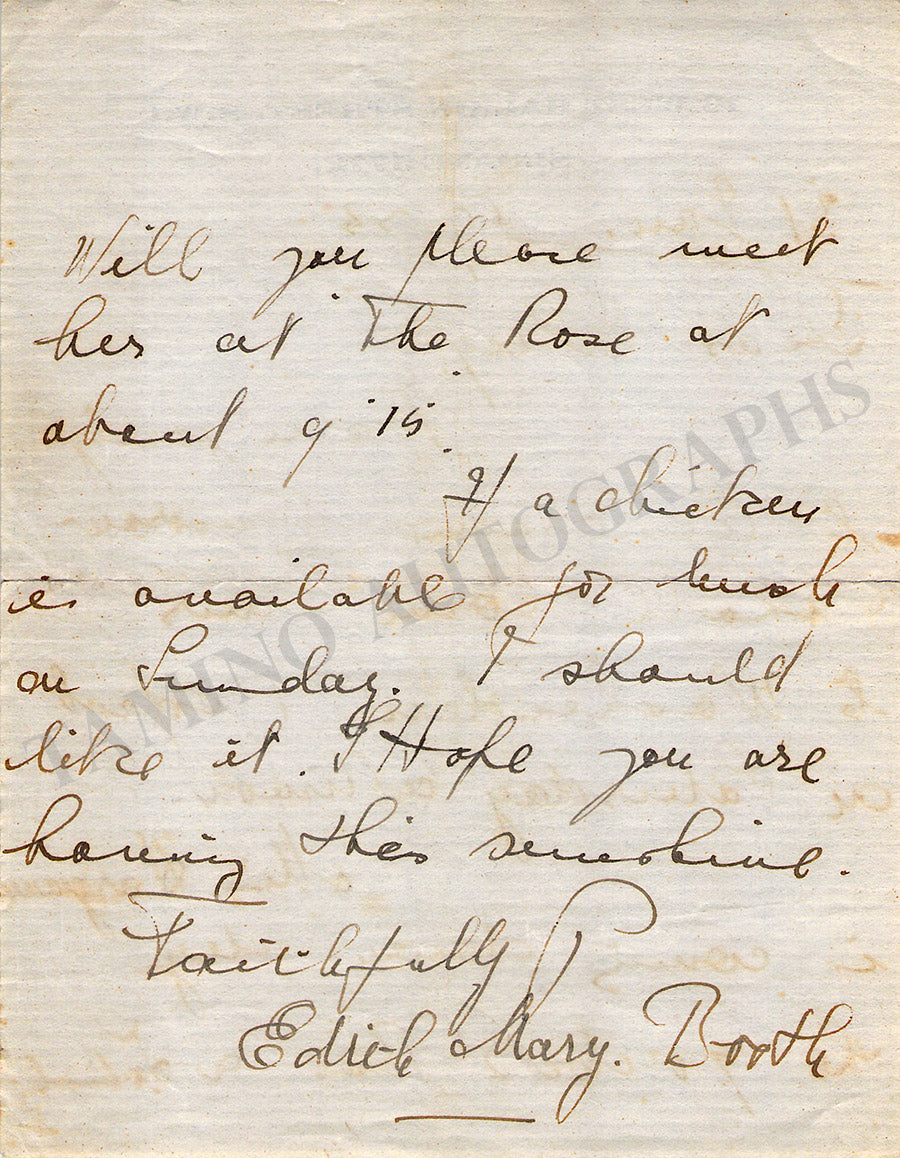 Will you please meet
her at "The Rose" at
about 9.15.
If a chicken
is available for lunch
on Sunday. I should
like it. I Hope you are
having this sunshine.
Faithfully
Edith Mary. Booth
TAMINO AUTOGRAPHS